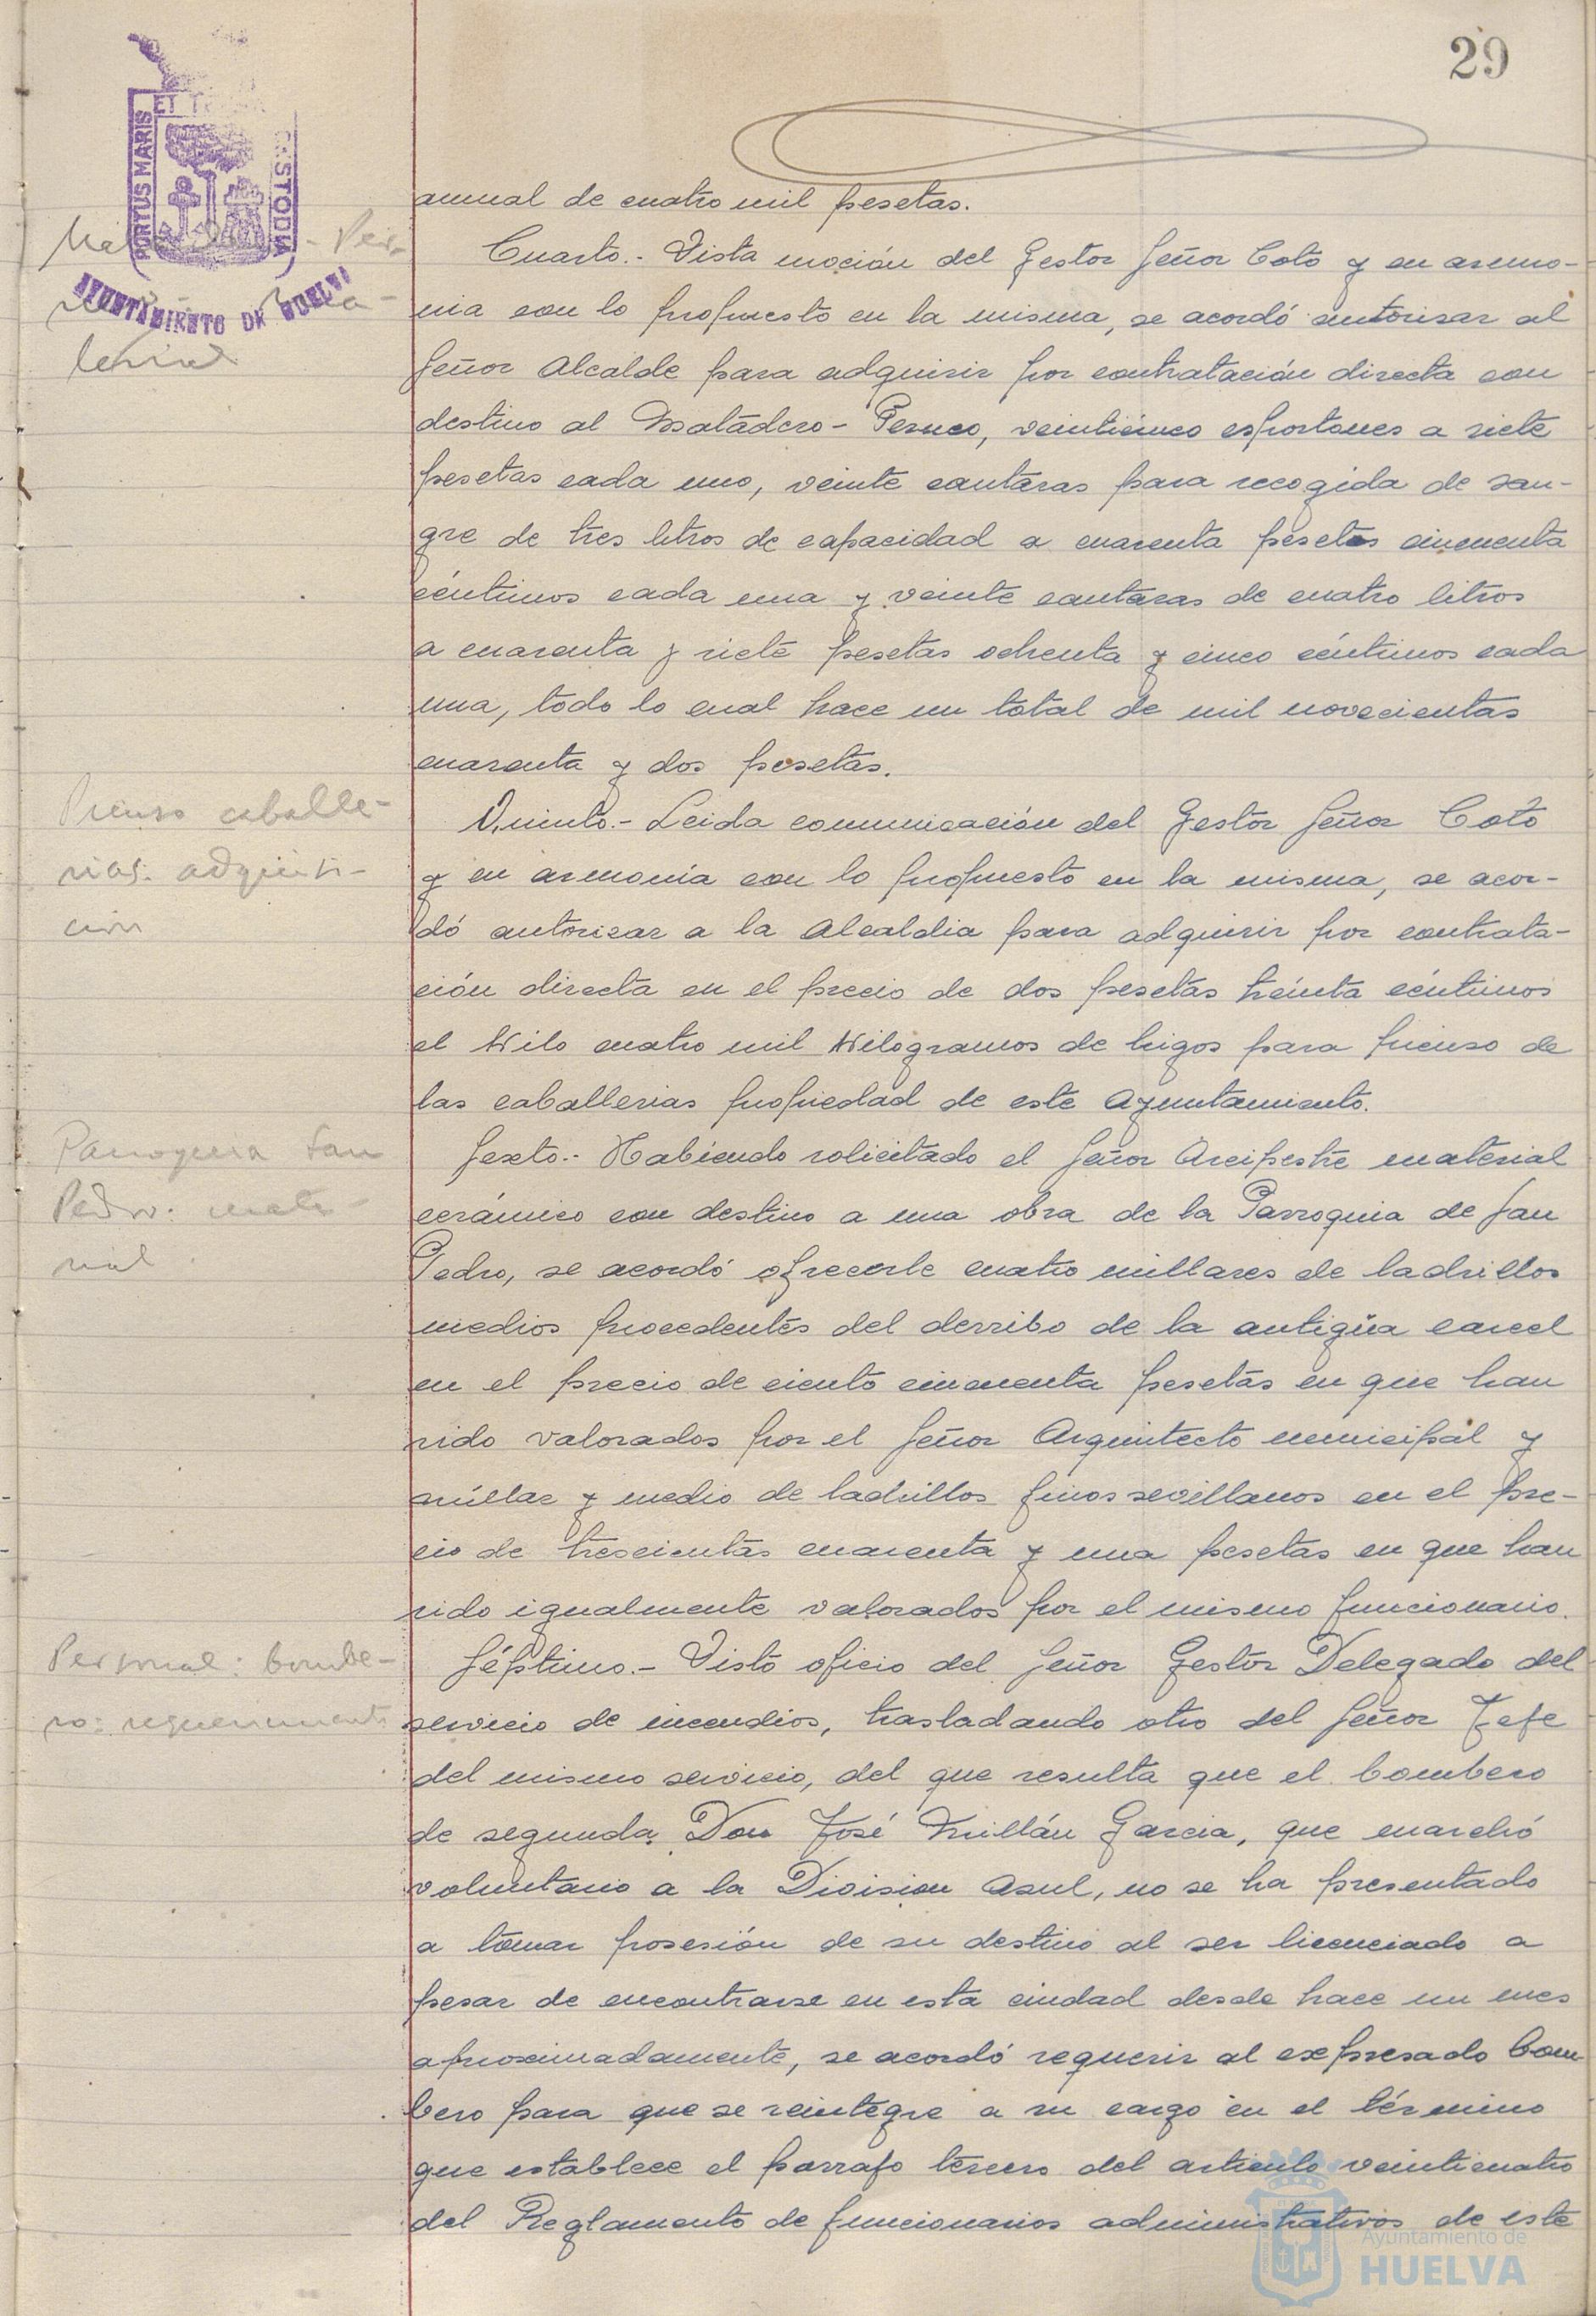 29
PORTUS MARIS
ET
CUSTODIA
AYUNTAMIENTO DE HUELVA
anual de cuatro mil pesetas.
Cuarto.- Vista moción del Gestor Señor Coto y en armo-
nia con lo propuesto en la misma, se acordó autorizar al
Señor Alcalde para adquirir por contratación directa con
destino al Matadero- veinticinco esportones a siete
pesetas cada uno, veinte cantaras para recogida de san-
gre de tres litros de capacidad a cuarenta pesetas cincuenta
céntimos cada una y veinte cantaras de cuatro litros
a cuarenta y siete pesetas ochenta y cinco céntimos cada
una, todo lo cual hace un total de mil novecientas
cuarenta y dos pesetas.
Pienso caballe-
rias: adquisi-
ción
Quinto.- Leida comunicación del Gestor Señor Coto
y en armonía con lo propuesto en la misma, se acor-
dó autorizar a la Alcaldia para adquirir por contrata-
ción directa en el precio de dos pesetas treinta céntimos
el kilo cuatro mil kilogramos de higos para pienso de
las caballerias propiedad de este Ayuntamiento.
Parroquia San
Pedro: mate-
rial
Sexto.- Habiendo solicitado el Señor Arcipestre material
cerámico con destino a una obra de la Parroquia de San
Pedro, se acordó ofrecerle cuatro millares de ladrillos
medios procedentes del derribo de la antigüa carcel
en el precio de ciento cincuenta pesetas en que han
sido valorados por el Señor Arquitecto municipal y
millar y medio de ladrillos finos sevillanos en el pre-
cio de trescientas cuarenta y una pesetas en que han
sido igualmente valorados por el mismo funcionario.
Personal: bombe-
ro: requerimiento
Séptimo.- Visto oficio del Señor Gestor Delegado del
servicio de incendios, trasladando otro del Señor Jefe
del mismo servicio, del que resulta que el bombero
de segunda Don José Millán Garcia, que marchó
voluntario a la Division Azul, no se ha presentado
a tomar posesión de su destino al ser licenciado a
pesar de encontrarse en esta ciudad desde hace un mes
aproximadamente, se acordó requerir al expresado bom-
bero para que se reintegre a su cargo en el término
que establece el parrafo tercero del articulo veinticuatro
del Reglamento de funcionarios administrativos de este
Ayuntamiento de
HUELVA